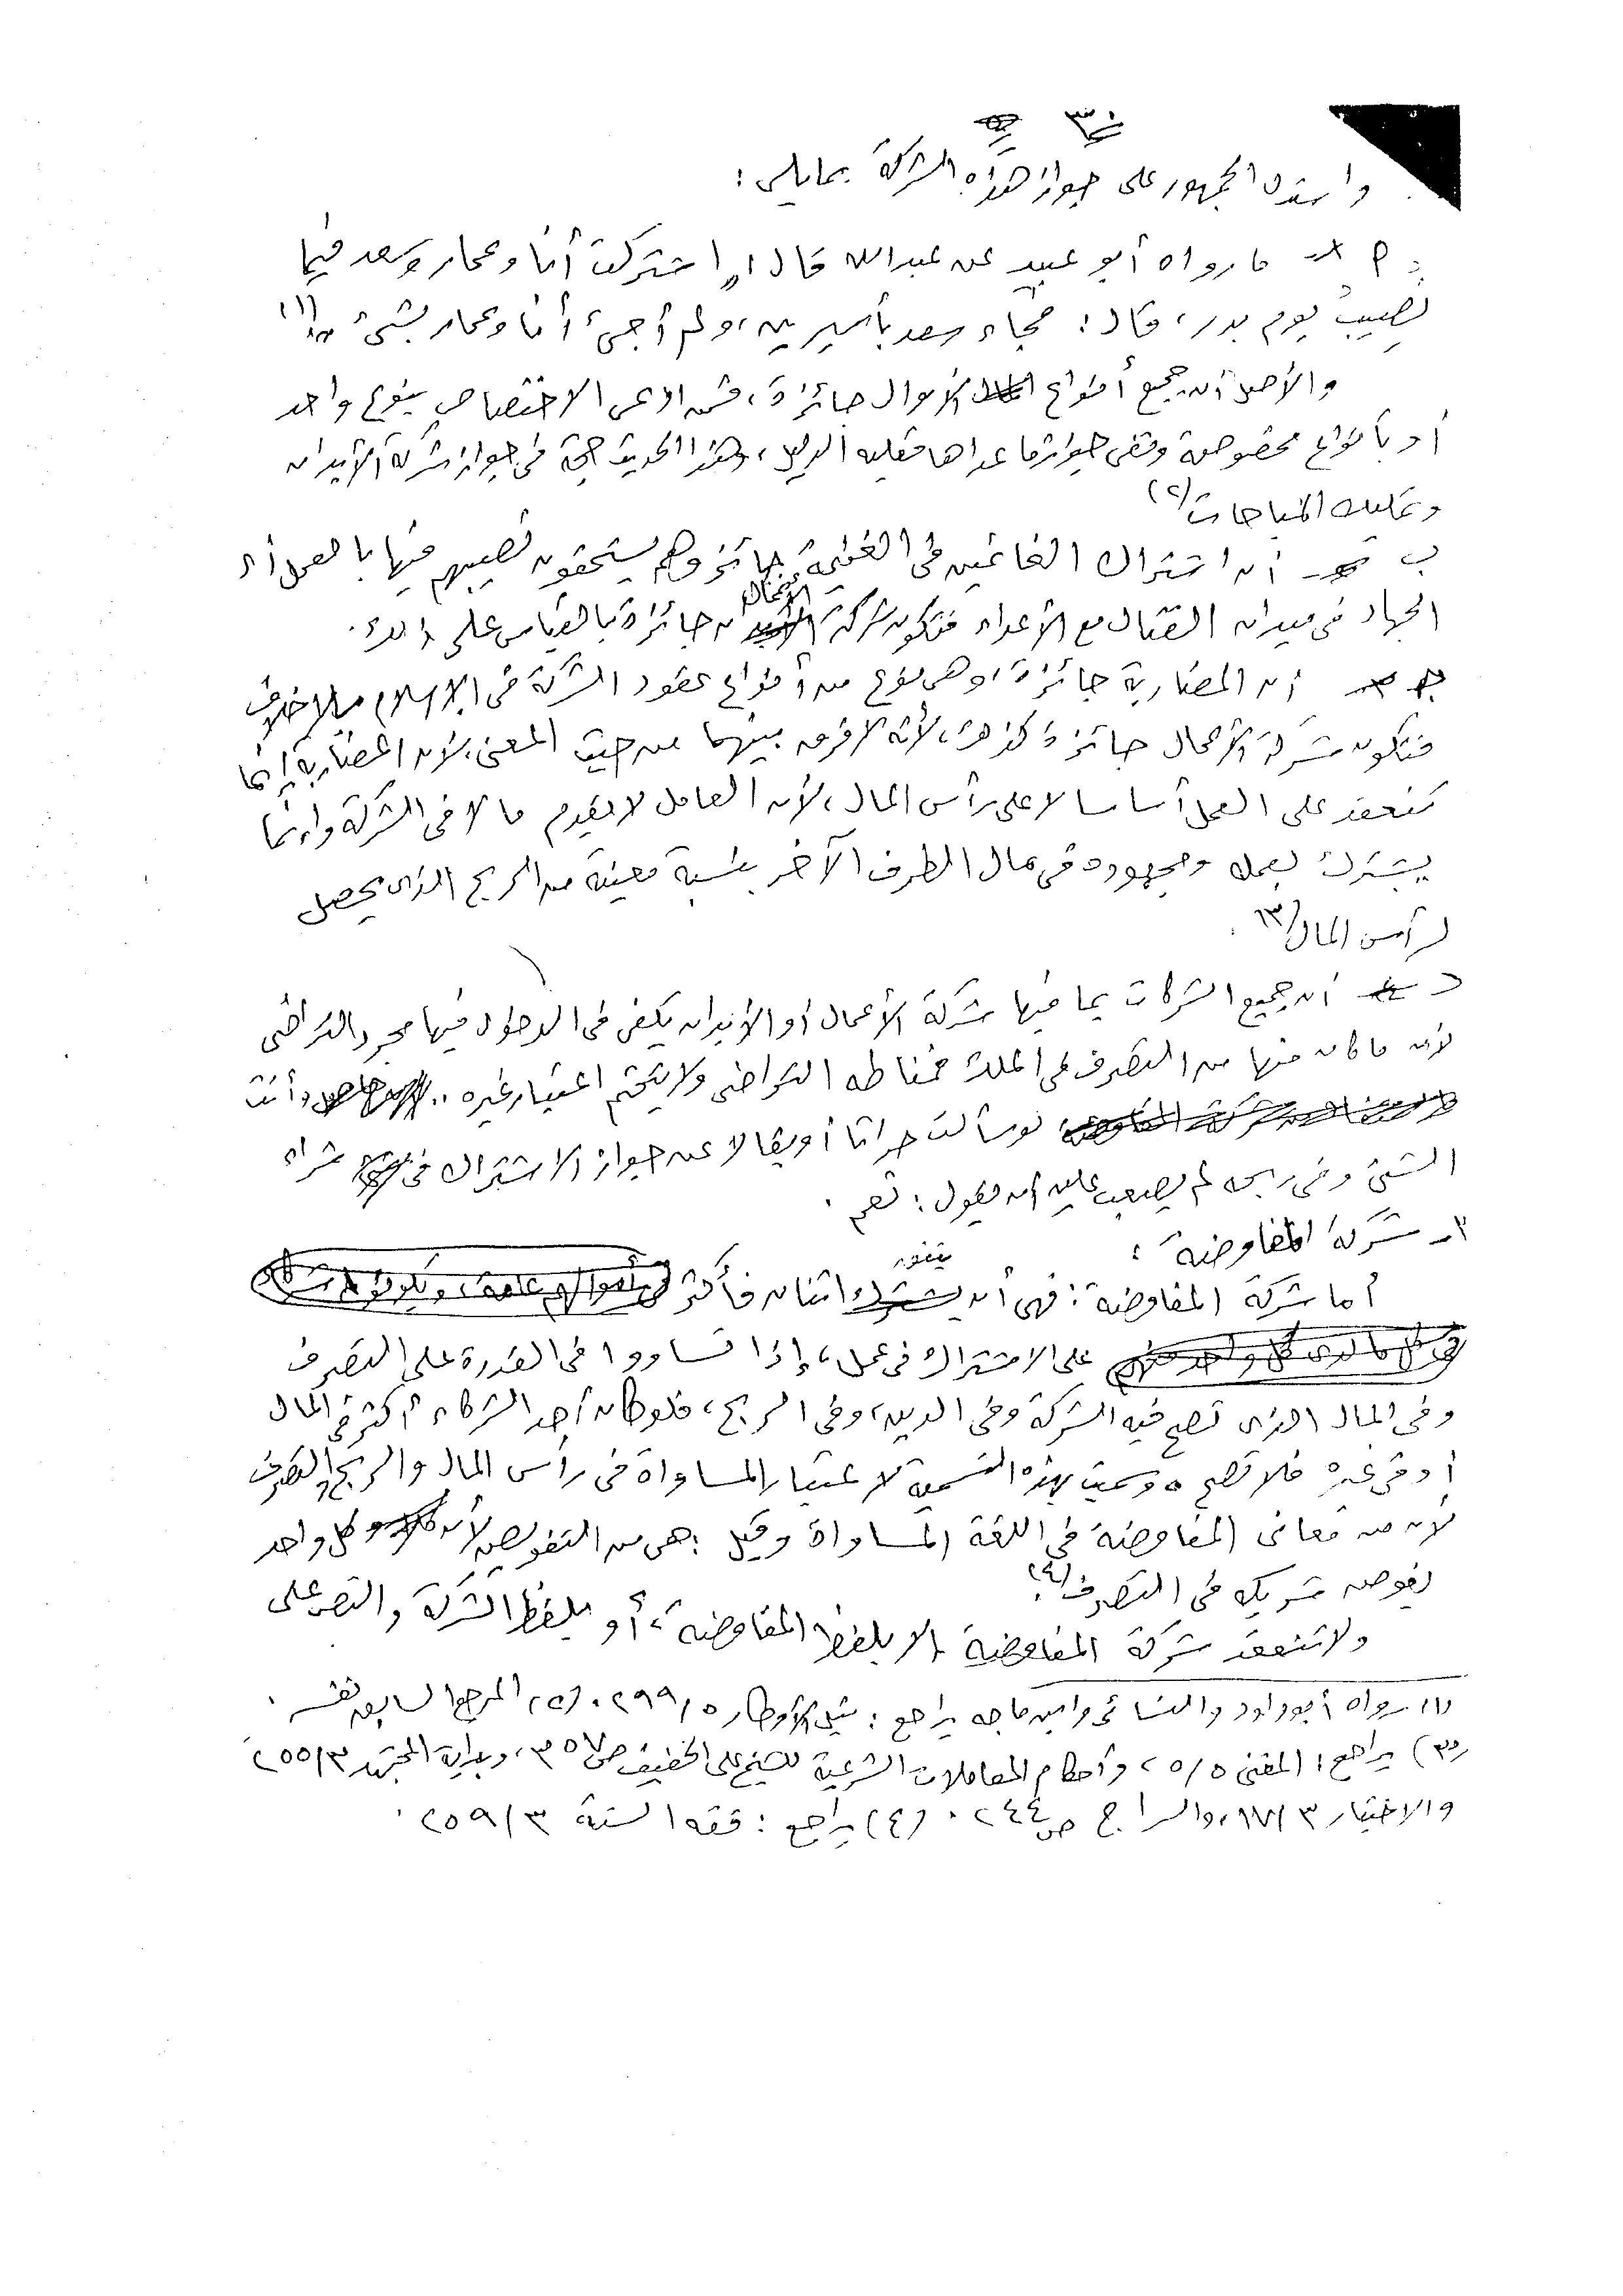 ٣٠
واستدل الجمهور على جواز هذه الشركة بما يلى :
أ - ما رواه أبو عبيد عن عبدالله قال : اشتركت أنا وعمار وسعد فيما
نصيب يوم بدر ، قال : فجاء سعد بأسيرين ، ولم أجئ أنا وعمار بشئ (١)
والأصل أن جميع أنواع الأموال جائزة ، فمن ادعى الاختصاص بنوع واحد
أو بأنواع مخصوصة ونفى جواز ما عداها فعليه الدليل ، وهذا الحديث حجة فى جواز شركة الأبدان
وتمليك المباحات (٢)
ب - أن اشتراك الغانمين فى الغنيمة جائز وهم يستحقون نصيبهم فيها بالعمل أو
الجهاد فى ميدان القتال مع الأعداء فتكون شركة الأعمال جائزة بالقياس على ذلك .
ج - أن المضاربة جائزة ، وهى نوع من أنواع عقود الشركة فى الإسلام بلا خلاف
فتكون شركة الأعمال جائزة كذلك ، لأنه لا فرق بينهما من حيث المعنى ، لأن المضاربة إنما
تنعقد على العمل أساسا لا على رأس المال ، لأن العامل لا يقدم مالا فى الشركة وإنما
يشترك بعمله ومجهوده فى مال الطرف الآخر بنسبة معينة من الربح الذى يحصل
لرأس المال (٣) .
د - أن جميع الشركات بما فيها شركة الأعمال أو الأبدان يكفى فى الدخول فيها مجرد التراضى
لأن ما كان منها من التصرف فى الملك فمناطه التراضى ولا يتحتم اعتبار غيره .. وأنت
لو سألت حراثا أو بقالا عن جواز الاشتراك فى شراء
الشئ وفى ربحه لم يصعب عليه أن يقول : نعم .
شركة المفاوضة :
أما شركة المفاوضة : فهى أن يتعقد اثنان فأكثر
على الاشتراك فى عمل ، إذا تساووا فى القدرة على التصرف
وفى المال الذى تصح فيه الشركة وفى الدين ، وفى الربح ، فلو كان أحد الشركاء أكثر فى المال
أو فى غيره فلا تصح وسميت بهذه التسمية لاعتبار المساواة فى رأس المال والربح والتصرف
لأن من معانى المفاوضة فى اللغة المساواة وقيل : هى من التفويض لأن كل واحد
يفوض شريكه فى التصرف (٤) .
ولا تنعقد شركة المفاوضة إلا بلفظ المفاوضة ، أو بلفظ الشركة والنص على
(١) رواه أبو داود والنسائى وابن ماجه يراجع : نيل الأوطار ٢٩٩/٥ . (٢) المرجع السابق نفسه .
(٣) يراجع : المغنى ٥/٥ ، وأحكام المعاملات الشرعية للشيخ على الخفيف ص ٣٥٧ ، وبداية المجتهد ٢٥٥/٣
والاختيار ١٧/٣ ، والسراج ص ٢٤٤ . (٤) يراجع : فقه السنة ٢٥٩/٣ .